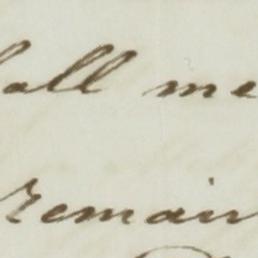 hall me
remain